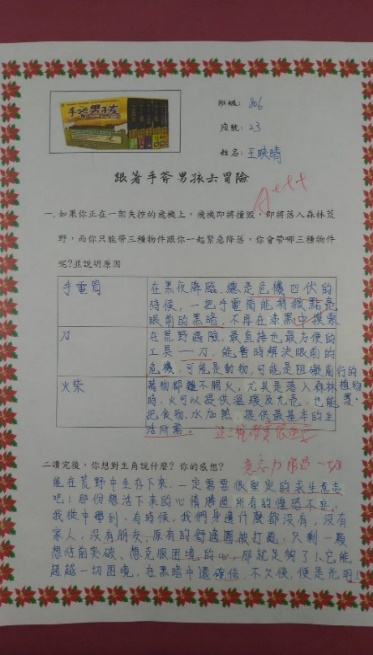 手斧男孩
班級: 806
座號: 23
姓名: 王映晴
跟著手斧男孩去冒險
A+++
一. 如果你正在一架失控的飛機上，飛機即將撞毀，即將落入森林荒
野，而你只能帶三種物件跟你一起緊急降落，你會帶哪三種物件
呢?並說明原因
手電筒
在黑夜降臨，總是危機四伏的
時候，一把手電筒能稍微點亮
眼前的黑暗，不再在漆黑中摸索
刀
在荒野冒險，最直接也最方便的
工具——刀，能暫時解決眼前的
危機，可能是動物，可能是阻礙前行的
植物
火柴
萬物都離不開火，尤其是落入森林
時，火可以提供溫暖及光亮，也能
把食物、水加熱，提供最基本的生
活所需。
二.讀完後，你想對主角說什麼? 你的感想?
意志力 一切
能在荒野中生存下來，一定需要很堅定的求生意志
吧！那份想活下來的心情勝過所有的
我從中學到，有時候，我們身邊什麼都沒有，沒有
家人，沒有朋友，原有的舒適圈被打亂，只剩一顆
想往前突破、想克服困境的心，那就足夠了！它能
超越一切困境，在黑暗中還確信，不久後，便是光明！